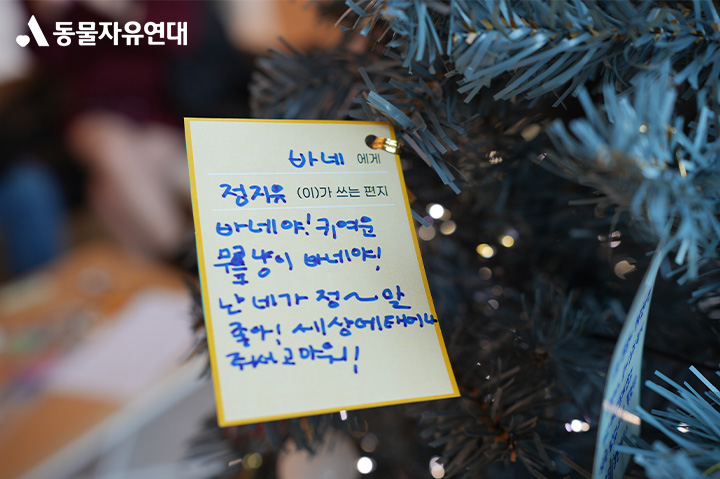 동물자유연대
바네 에게
정지유 (이)가 쓰는 편지
바네야! 귀여운
무릎냥이 바네야!
난 네가 정~말
좋아! 세상에 태어나
줘서 고마워!